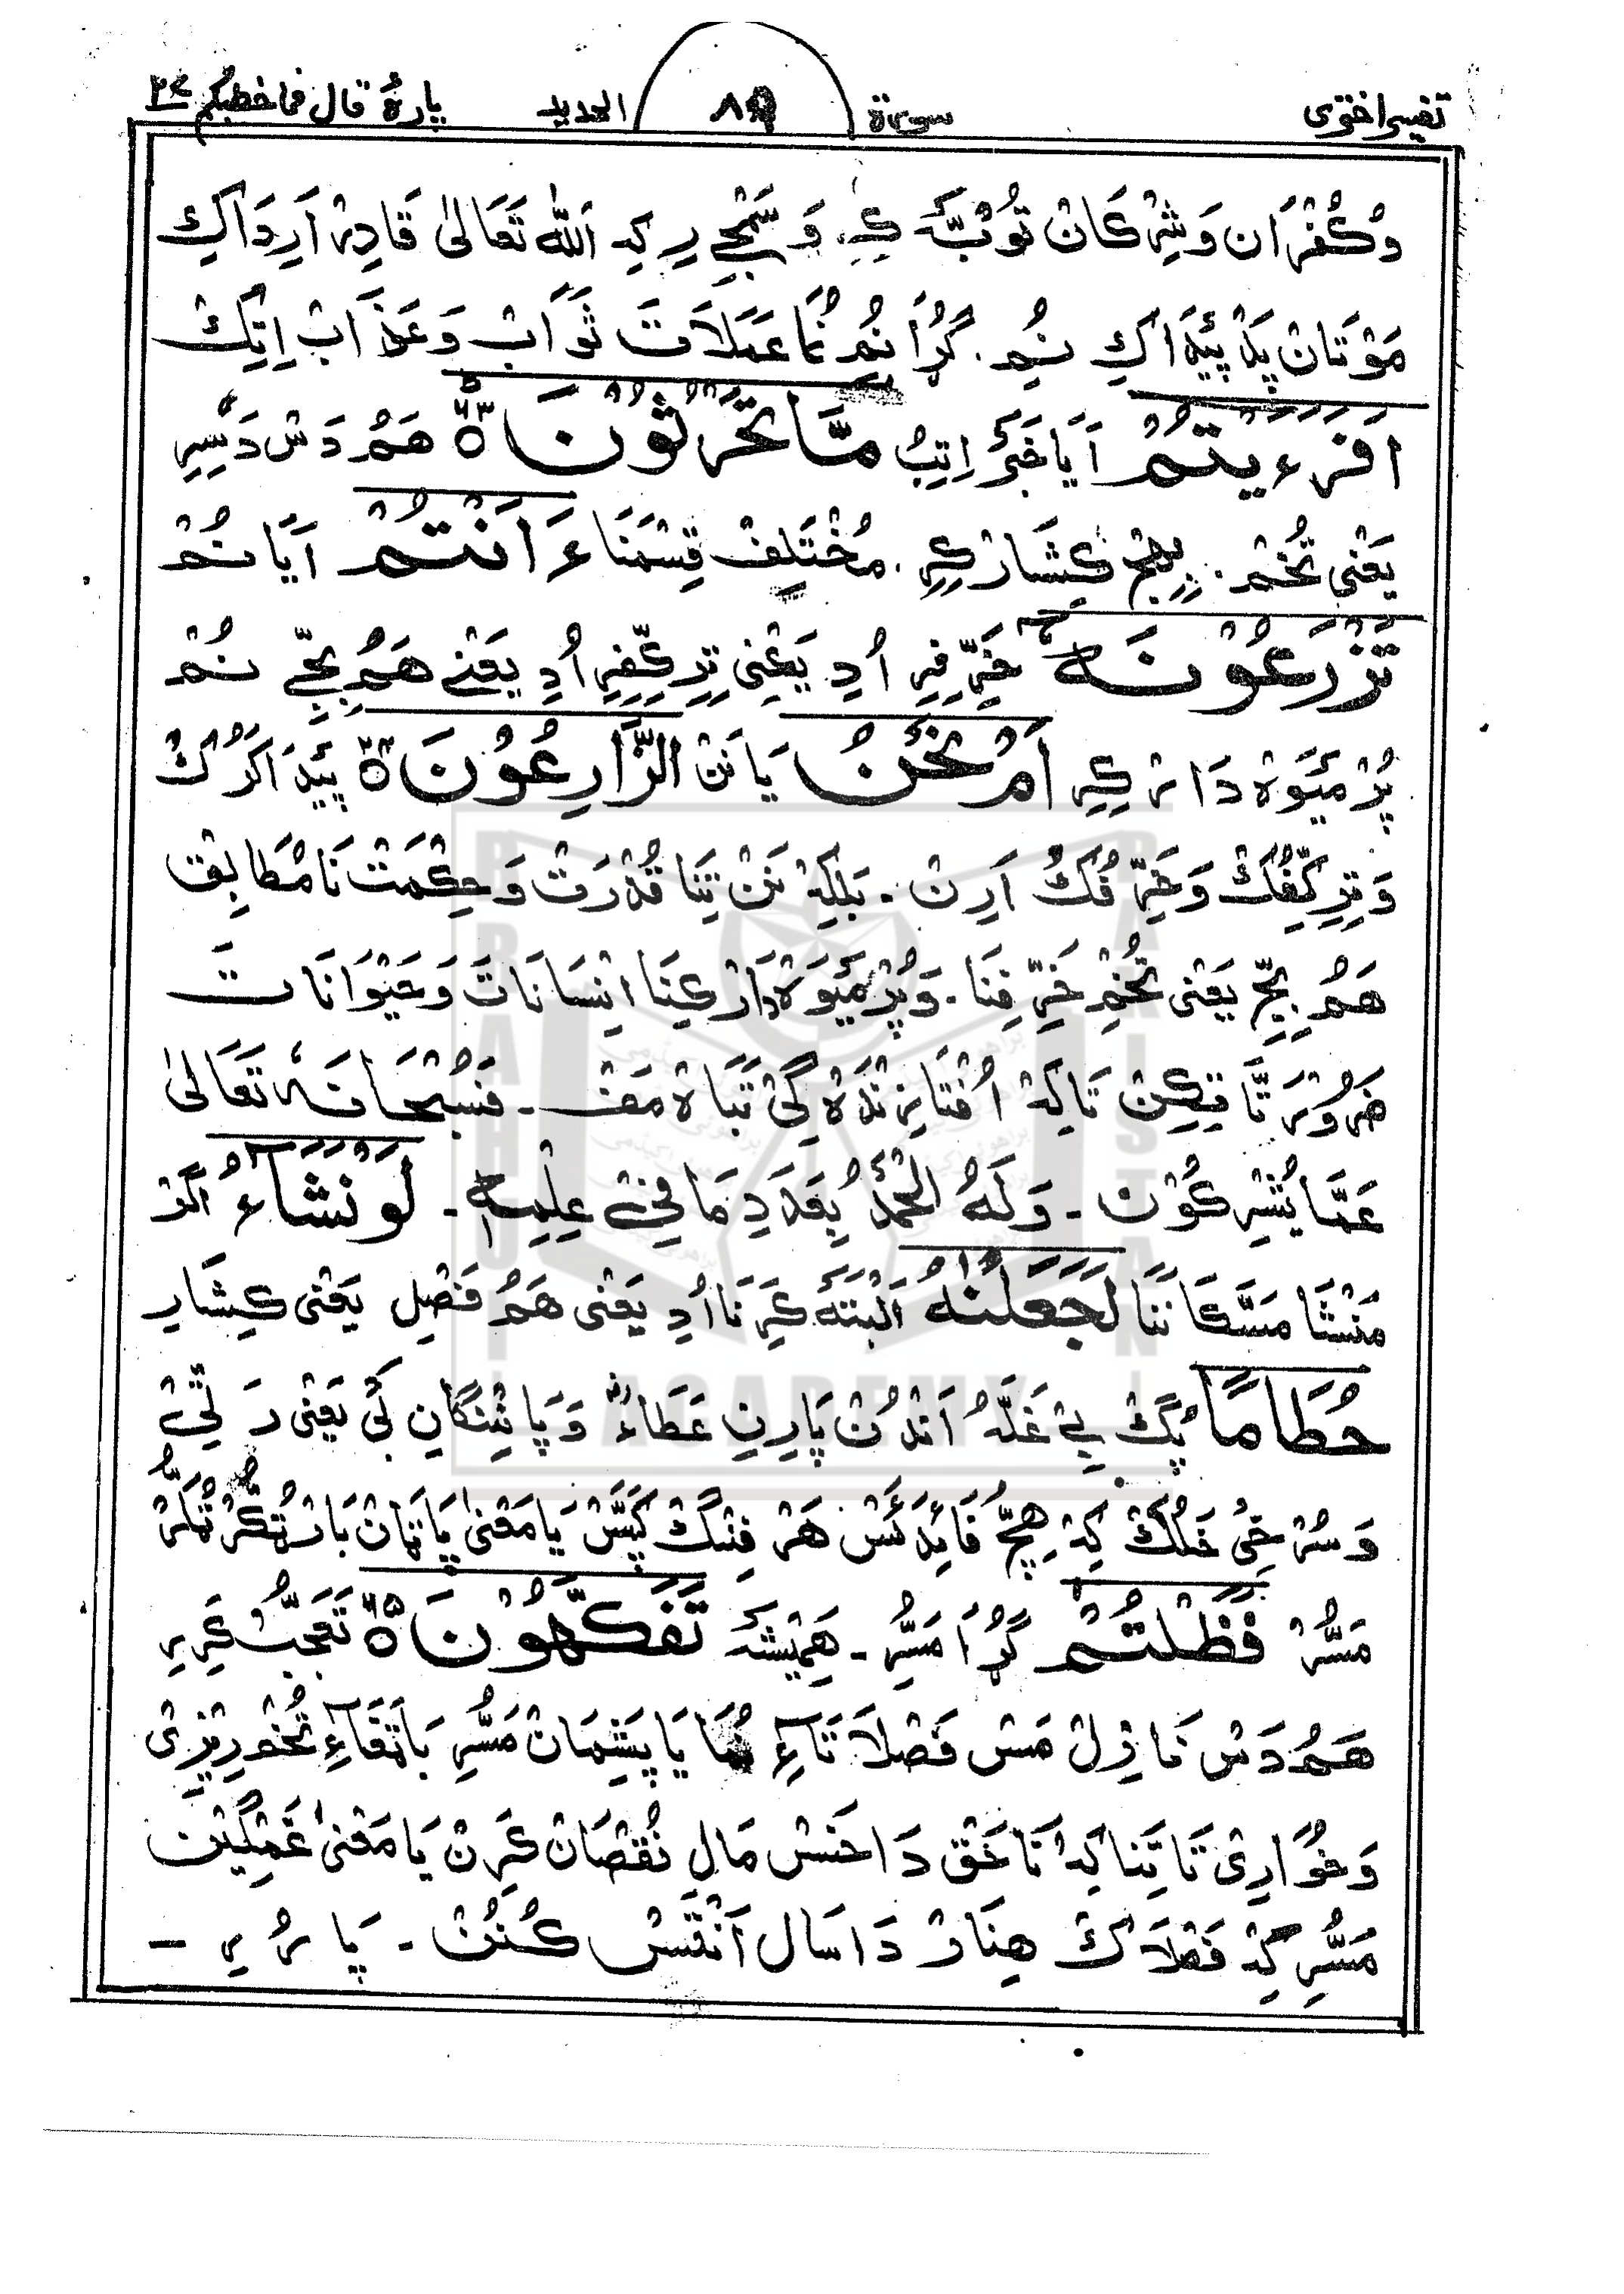 تفسیر اختری سورة ۸۹ الحدید پارهٔ قال فماخطبکم ۲۷
وکُفْرَان وَشِرْکَانْ تُوْبَّہ کِرِ وَسَّمْجِرِ کِہ اَللّٰہ تَعَالیٰ قَادِرْ اَرِدَاکِ
مَوْتَانْ پَدْ پَیْدَاکِ نُمِ. گُڑَا نُم نُمَا عَمَلَاتَ ثَوَابْ وَعَذَابْ اِتِکْ
اَفَرَءَیْتُمْ اَیَا خَبَرْ اِتِبُ مَّا تَحْرُثُوْنَ ۶۳ هَمُ دَسْ دَسِّرِ
یَعْنِی تُخْمْ. بِهِجْ کِشَارْکِرِ. مُخْتَلِفْ قِسْمَنَا ءَ اَنْتُمْ اَیَا نُمْ
تَزْرَعُوْنَہٗ خَرِّفِرِ اُدِ یَعْنِی تِرِکِّفِرِ اُدِ یَعْنِے هَمُ بِجِّے نُمْ
پُرْ مَیْوَہْ دَارْ کِرِ اَمْ نَحْنُ یَا نَنْ الزَّارِعُوْنَ ۶۴ پَیْدَ اکَرُکْ
وَتِرِکِّفُکْ وَخَرِّفُکْ اَرِنْ - بَلْکِہْ نَنْ تِنَا قُدْرَتْ وَحِکْمَتْ نَا مُطَابِقْ
هَمُ بِجِّ یَعْنِی تُخْمِ خَرِّفِنَا - وَپُرْ مَیْوَہْ دَارْ کِنَا اِنْسَانَاتَ وَحَیْوَانَاتَ
ضَرُوْرَتَّا تِکِنْ تَاکِہْ اُفْتَا زِنْدَہْ گِیْ تَبَاہْ مَفْ - فَسُبْحَانَہٗ تَعَالیٰ
عَمَّا یُشْرِکُوْن - وَلَہُ الْحَمْدُ بِعَدَدِ مَا فِیْ عِلْمِہٖ - لَوْنَشَآءُ اگَرْ
مَنْشَا مَسَّکَا نَنَا لَجَعَلْنٰہُ اَلْبَتَّہ کَرِنَا اُدِ یَعْنِی هَمُ فَصْلِ یَعْنِی کِشَارِ
حُطَامًا پُگْ بے غَلَّہُ اَنْدُنْ پَارِنِ عَطَاءٌ وَپَا بِنْنِگَانِ کَیْ یَعْنِی دَ لِّیْ
وَسُرْخِیْ خَلُکْ کِہْ هِچّ فَائِدَئَسْ هَرْفِنْکْ کَپَّسْ یَا مَعْنیٰ پَانَانْ بَارْتُکُرْ تُمَرُّ
مَسُّرْ فَظَلْتُمْ گُڑَا مَسُّرِ - هَمِیْشَہ تَفَکَّهُوْنَ ۶۵ تَعَجُّبْ کَرِرِ
هَمُ دَسْ نَازِلْ مَسْ فَصْلَاتَآءِ نُمَا یَا پَشِیْمَانْ مَسُّرِ بَا تِفَآءِ تُخُمْ رِیْزِیْ
وَخُوَارِیْ نَا تِنَا کِہْ نَاحَقْ دَا خَسْ مَالِ نُقْصَانْ کَرِنْ یَا مَعْنیٰ غَمْگِیْنْ
مَسُّرِ کِہْ فَصْلَاکْ هِنَارْ دَا سَال اَنْتَسْ کُنُنْ - پَارُرِ -